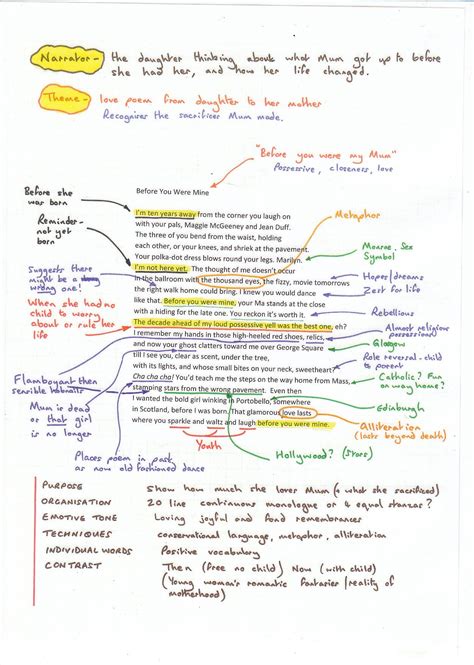 Narrator - the daughter thinking about what Mum got up to before
she had her, and how her life changed.
Theme - love poem from daughter to her mother
Recognises the sacrifices Mum made.
"Before you were my Mum"
Possessive, closeness, love
Before she
was born
Before You Were Mine
Metaphor
I'm ten years away from the corner you laugh on
with your pals, Maggie McGeeney and Jean Duff.
Reminder -
not yet
born
The three of you bend from the waist, holding
each other, or your knees, and shriek at the pavement.
Your polka-dot dress blows round your legs. Marilyn.
Monroe. Sex
Symbol
I'm not here yet. The thought of me doesn't occur
in the ballroom with the thousand eyes, the fizzy, movie tomorrows
Hopes/dreams
Zest for life
Suggests there
might be a
wrong one!
the right walk home could bring. I knew you would dance
like that. Before you were mine, your Ma stands at the close
with a hiding for the late one. You reckon it's worth it.
Rebellious
When she had no
child to worry
about or rule her
life
The decade ahead of my loud possessive yell was the best one, eh?
I remember my hands in those high-heeled red shoes, relics,
Almost religious
possessions!
and now your ghost clatters toward me over George Square
Glasgow
till I see you, clear as scent, under the tree,
with its lights, and whose small bites on your neck, sweetheart?
Role reversal - child
to parent
Flamboyant then
sensible
Cha cha cha! You'd teach me the steps on the way home from Mass,
Catholic? Fun
on way home?
stamping stars from the wrong pavement. Even then
I wanted the bold girl winking in Portobello, somewhere
Edinburgh
Mum is dead
or that girl
is no longer
in Scotland, before I was born. That glamorous love lasts
where you sparkle and waltz and laugh before you were mine.
Alliteration
(lasts beyond death)
Youth
Hollywood? (Stars)
Places poem in past
as now old fashioned dance
PURPOSE Show how much she loves Mum (& what she sacrificed)
ORGANISATION 20 line continuous monologue or 4 equal stanzas?
EMOTIVE TONE Loving joyful and fond remembrances
TECHNIQUES conversational language, metaphor, alliteration
INDIVIDUAL WORDS Positive vocabulary
CONTRAST Then (free no child) Now (with child)
(Young woman's romantic fantasies/reality of
motherhood)